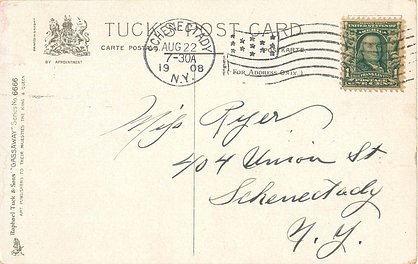 TUCK'S POST CARD
CARTE POSTALE
POSTKARTE.
BY APPOINTMENT
(FOR ADDRESS ONLY.)
SCHENECTADY
AUG 22
7-30A
1908
N.Y.
1
Miss Ryer
404 Union St
Schenectady
N.Y.
Raphael Tuck & Sons "GASSAWAY" Series No. 6666
ART PUBLISHERS TO THEIR MAJESTIES THE KING & QUEEN